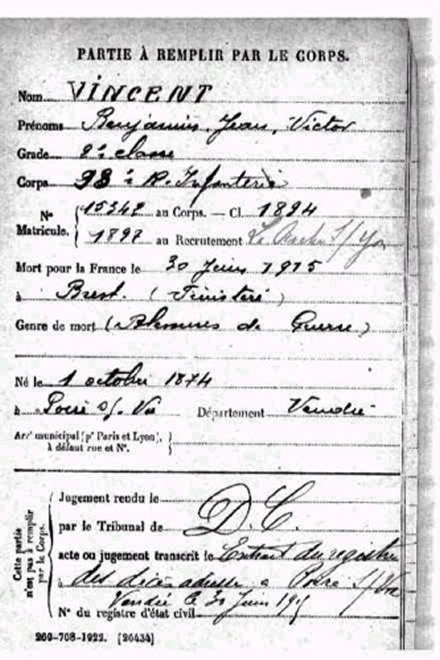 PARTIE À REMPLIR PAR LE CORPS.
Nom VINCENT
Prénoms Benjamin, Jean, Victor
Grade 2e classe
Corps 93e R. Infanterie
Nos Matricule.
au Corps. — Cl. 1894
au Recrutement La Roche S/Yon
Mort pour la France le 30 Juin 1915
à Brest (Finistère)
Genre de mort (Blessures de Guerre)
Né le 1 octobre 1874
à Poiré s/ Vie Département Vendée
Arrt municipal (pr Paris et Lyon),
à défaut rue et No.
Cette partie
n'est pas à remplir
par le Corps.
Jugement rendu le
par le Tribunal de D. C.
acte ou jugement transcrit le Extrait du registre
à des adresse à Poiré S/Vie
Vendée le 30 Juin
No du registre d'état civil
260-708-1922. [26434]